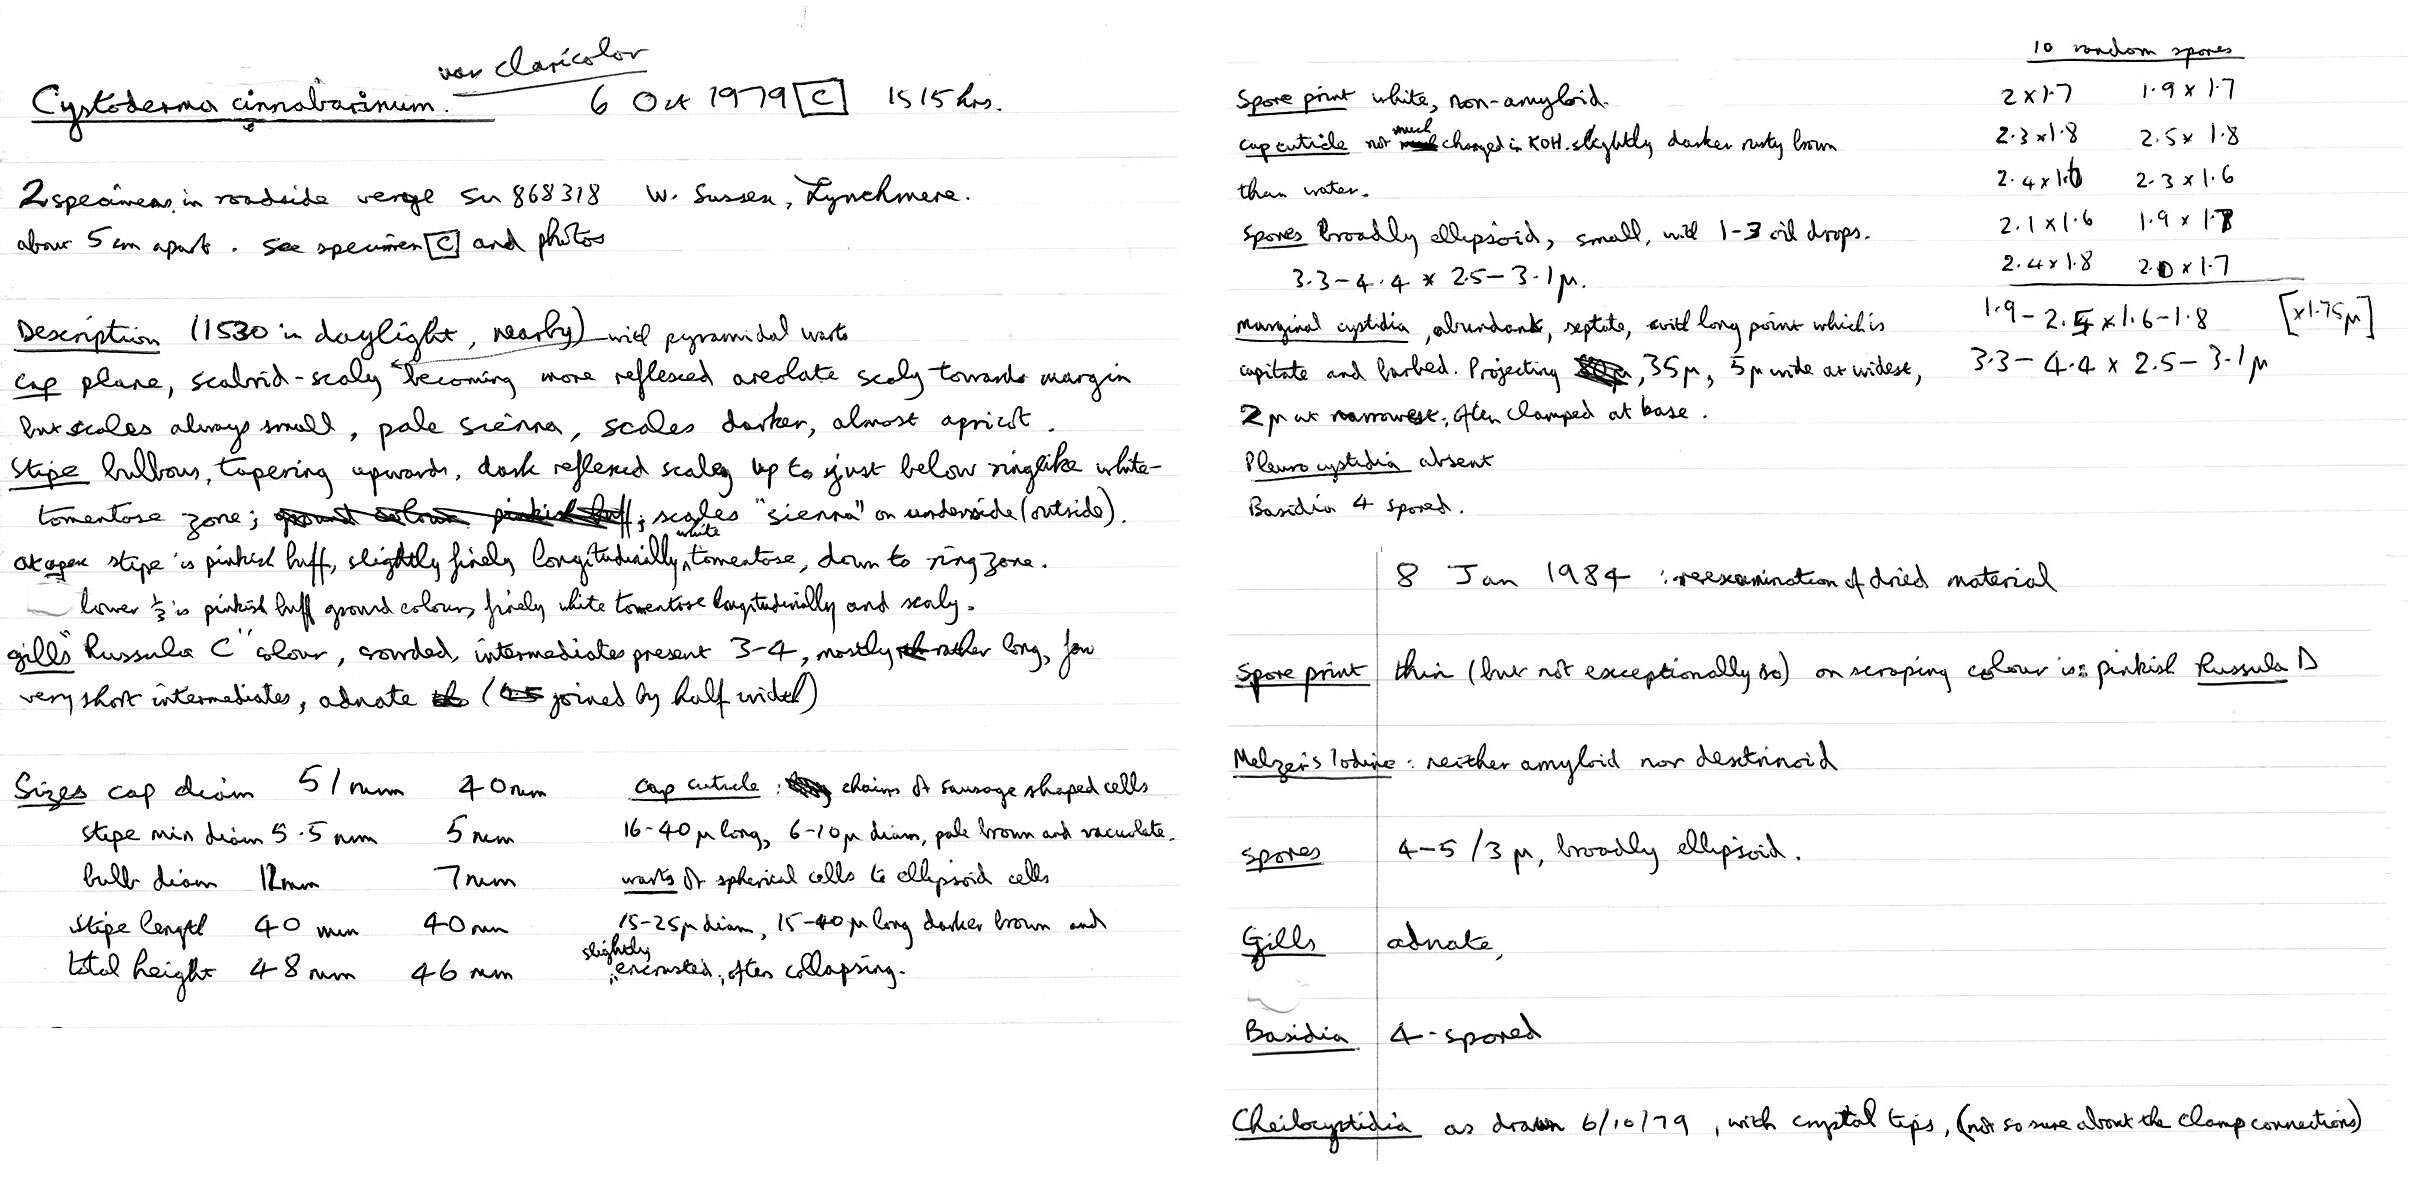 var claricolor
Cystoderma cinnabarinum. 6 Oct 1979 [C] 1515 hrs.
2 specimens in roadside verge SU 868318 W. Sussex, Lynchmere.
about 5 cm apart. See specimen [C] and photos
Description (1530 in daylight, nearby) with pyramidal warts
Cap plane, scabrid-scaly becoming more reflexed areolate scaly towards margin
but scales always small, pale sienna, scales darker, almost apricot.
Stipe bulbous, tapering upwards, dark reflexed scales up to just below ringlike white-
tomentose zone; ground colour pinkish buff; scales "sienna" on underside (outside).
white
at apex stipe is pinkish buff, slightly finely longitudinally tomentose, down to ring zone.
lower ⅓ is pinkish buff ground colour, finely white tomentose longitudinally and scaly.
gills "Russula C" colour, crowded, intermediates present 3-4, mostly rather long, few
very short intermediates, adnate (joined by half width)
Sizes cap diam 51 mm 40 mm
stipe min diam 5.5 mm 5 mm
bulb diam 12 mm 7 mm
stipe length 40 mm 40 mm
total height 48 mm 46 mm
Cap cuticle: chains of sausage shaped cells
16-40 μ long, 6-10 μ diam, pale brown and vacuolate.
warts of spherical cells to ellipsoid cells
15-25 μ diam, 15-40 μ long darker brown and
slightly
encrusted, often collapsing.
Spore print white, non-amyloid.
much
cap cuticle not changed in KOH. slightly darker rusty brown
than water.
Spores broadly ellipsoid, small, with 1-3 oil drops.
3.3-4.4 × 2.5-3.1 μ.
Marginal cystidia, abundant, septate, with long point which is
capitate and barbed. Projecting 35 μ, 5 μ wide at widest,
2 μ at narrowest; often clamped at base.
Pleurocystidia absent
Basidia 4 spored.
10 random spores
2 × 1.7 1.9 × 1.7
2.3 × 1.8 2.5 × 1.8
2.4 × 1.6 2.3 × 1.6
2.1 × 1.6 1.9 × 1.7
2.4 × 1.8 2.0 × 1.7
1.9-2.5 × 1.6-1.8 [×1.75 μ]
3.3-4.4 × 2.5-3.1 μ
8 Jan 1984: reexamination of dried material
Spore print thin (but not exceptionally so) on scraping colour is: pinkish Russula D
Melzer's Iodine: neither amyloid nor dextrinoid
Spores 4-5/3 μ, broadly ellipsoid.
Gills adnate,
Basidia 4-spored
Cheilocystidia as drawn 6/10/79, with crystal tips, (not so sure about the clamp connections)